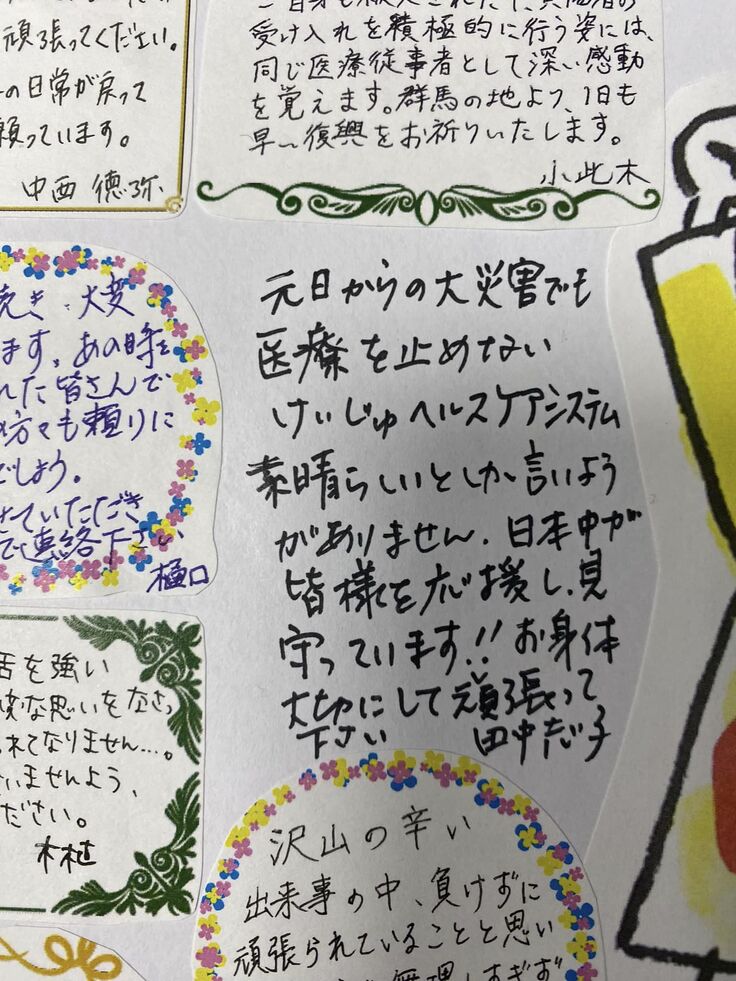 頑張ってください。
の日常が戻って
願っています。
中西 徳弥
受け入れを積極的に行う姿には、
同じ医療従事者として深い感動
を覚えます。群馬の地より、1日も
早い復興をお祈りいたします。
小此木
大変
ます。あの時を
れた皆さんで
方々も頼りに
でしょう。
せていただき
ご連絡下さい
樋口
元日からの大災害でも
医療を止めない
けいじゅヘルスケアシステム
素晴らしいとしか言いよう
がありません。日本中が
皆様を応援し、見
守っています!! お身体
大切にして頑張って
下さい 田中志子
を強い
な思いをなさっ
れてなりません…。
いませんよう、
ださい。
沢山の辛い
出来事の中、負けずに
頑張られていることと思い
無理しすぎず